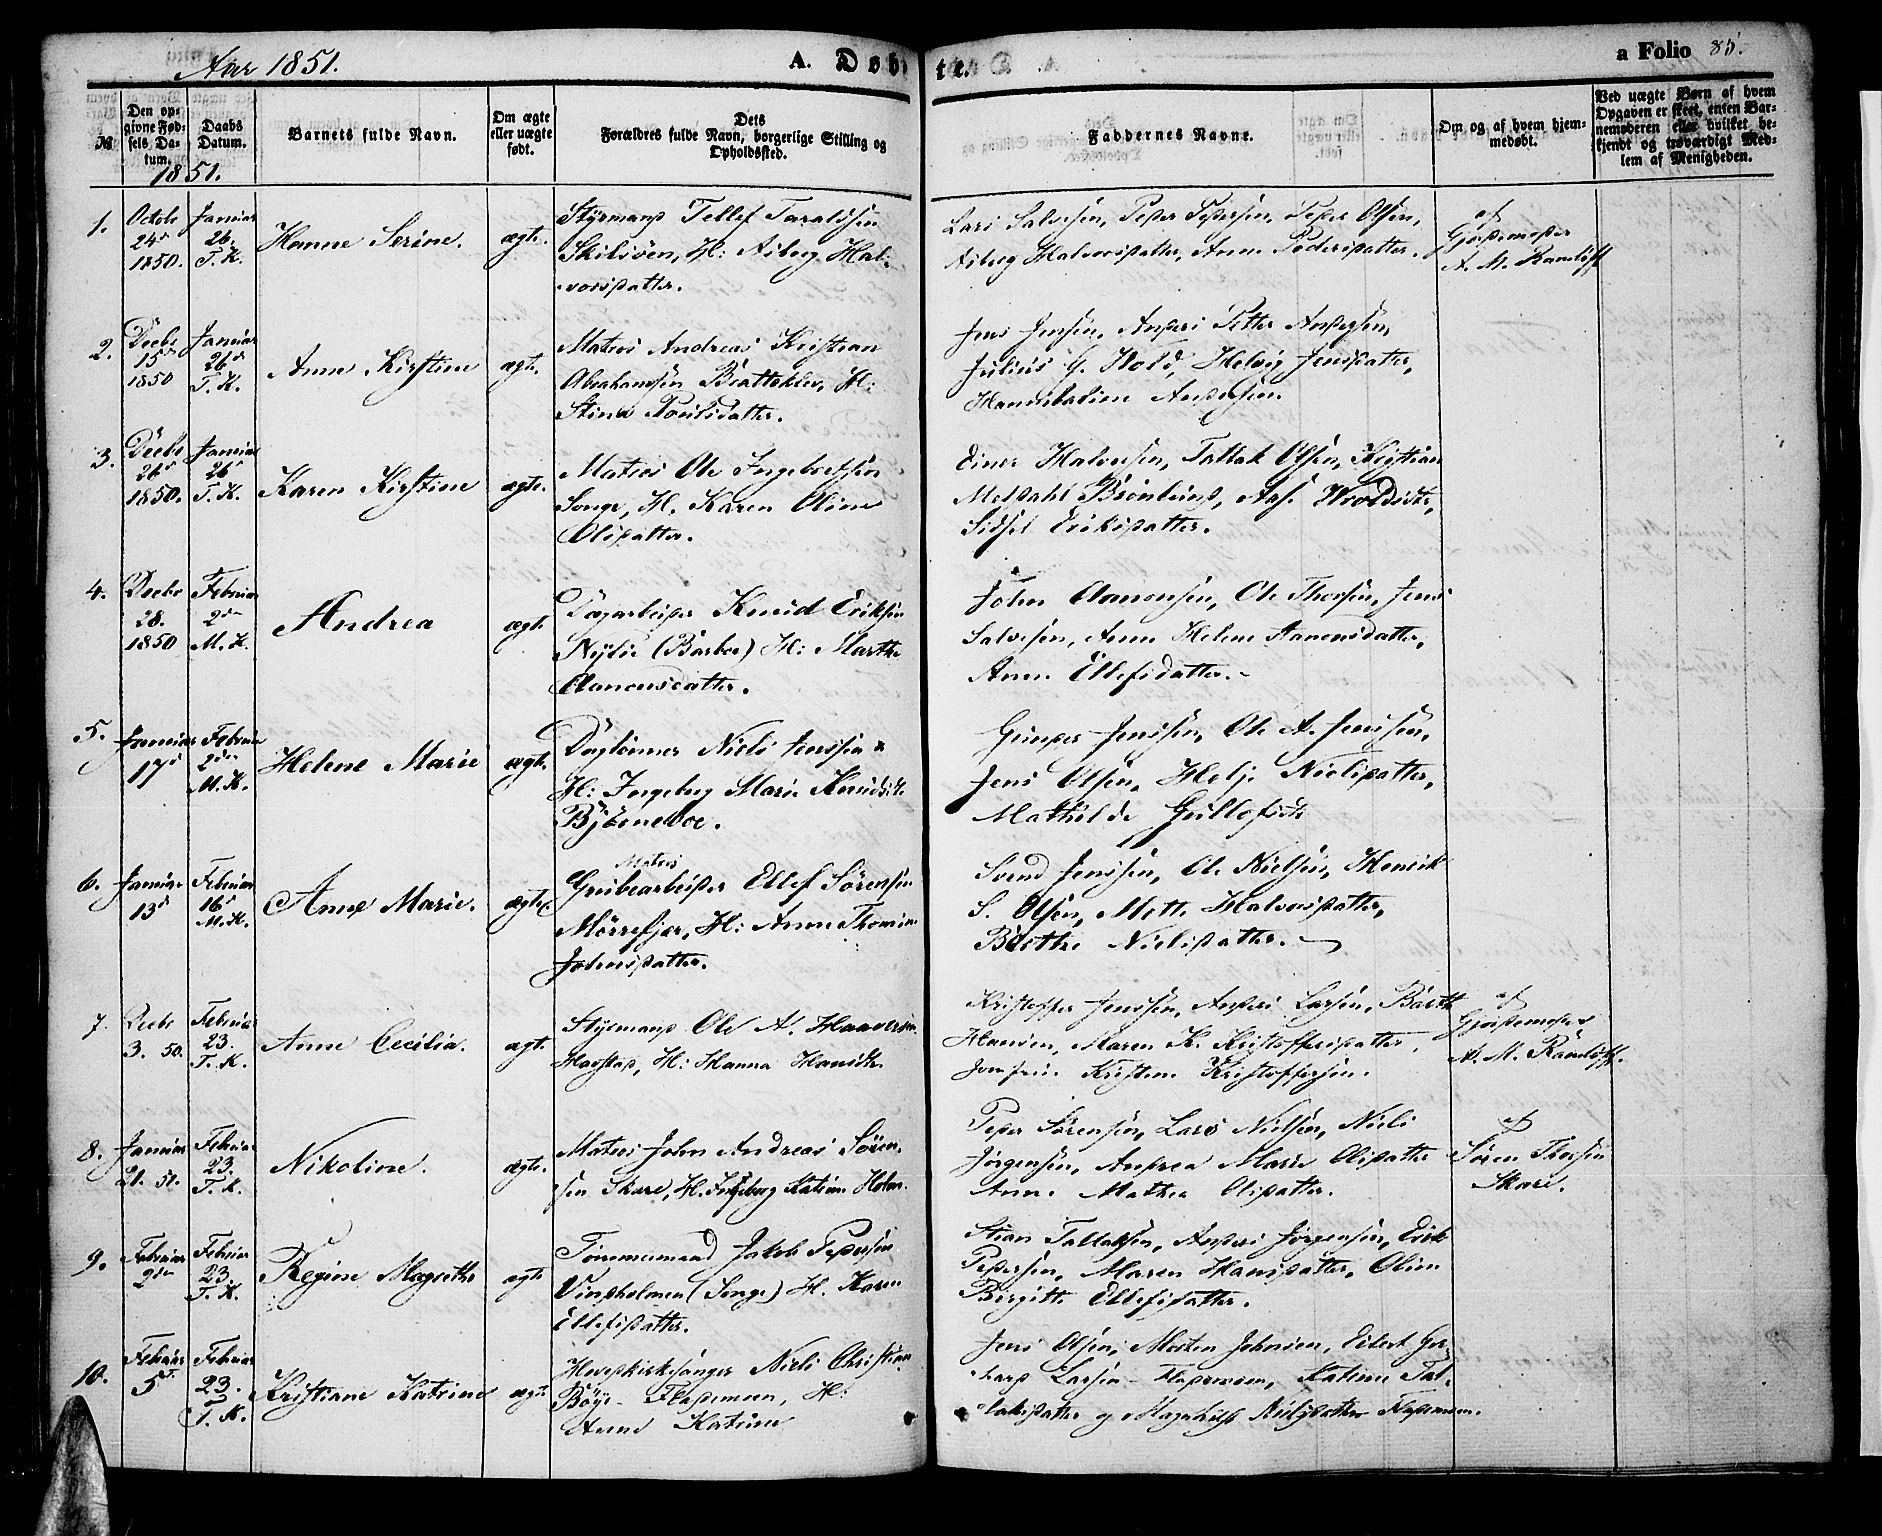 Aar 1851.
A. Døbte.
a Folio 85.
№
Den op-
givne Fød-
sels Da-
tum.
Daabs
Datum.
1851.
Barnets fulde Navn.
Om ægte
eller uægte
født.
Dets
Forældres fulde Navn, borgerlige Stilling og
Opholdssted.
Faddernes Navne.
Om og af hvem hjem-
medøbt.
Ved uægte Børn af hvem
Opgaven er skeet, enten Bar-
nemoderen eller hvilket be-
kjendt og troværdigt Med-
lem af Menigheden.
1.
Octobr
24de
1850.
Januar
26.
T. K.
Hanne Serine.
ægte.
Styrmand Tellef Taraldsen
H: Asberg Hal-
vorsdatter.
Lars Salvesen, Peder Pedersen, Peder Olsen,
Asberg Halvorsdatter, Anne Pedersdatter.
af
Gjordemoder
A. M. Ramløff
2.
Decbr
15de
1850
Januar
26de
T. K.
Anne Kirstine
ægte.
Matros Andreas Kristian
Abrahamsen Bratteklev, H:
Stine Poulsdatter.
Jens Jensen, Anders Petter Andersen,
Julius G. Hold, Helvig Jensdatter,
Andersen.
3.
Decbr
26de
1850.
Januar
26de
T. K.
Karen Kirstine
ægte.
Matros Ole Ingebretsen
Songe, H. Karen Oline
Olsdatter.
Einer Halvorsen, Tallak Olsen, Kristian
Aase
Sidsel Eriksdatter.
4.
Decbr
28.
1850
Februar
2den
M. K.
Andrea
ægte
Dagarbeider Knud Eriksen
Nylie (Barboe) H: Marthe
Aanonsdatter.
John Aanonsen, Ole Thorsen, Jens
Salvesen, Anne Helene Aanonsdatter,
Anne Ellefsdatter.
5.
Januar
17de
Februar
2den
M. K.
Helene Marie
ægte.
Daglønner Niels Jenssen &
H: Ingeborg Marie Knudsdtr
Bjørneboe.
Gunder Jenssen, Ole A. Jenssen,
Jens Olsen, Helje Nielsdatter,
Mathilde Gullefsdtr
6.
Januar
13de
Februar
16de
M. K.
Anne Marie.
ægte.
Matros
Grubearbeider Ellef Sørensen
Mørrefjær, H: Anne Thomine
Johnsdatter.
Svend Jenssen, Ole Nielsen, Henrik
S. Olsen, Mette Halvorsdatter,
Berthe Nielsdatter.
7.
Decbr
3. 50.
Februar
23.
T. K.
Anne Cecilia.
ægte.
Styrmand Ole A. Haaversen
Havstad, H: Hanna Hansdtr
Kristoffer Jenssen, Anders Larsen, Barth
Hansen, Maren K. Kristoffersdatter,
Jomfru Kristine Kristoffersen.
af
Gjordemoder
A. M. Ramløff.
8.
Januar
21. 51.
Februar
23.
T. K.
Nikoline.
ægte.
Matros John Andreas Søren-
sen Skare, H. Ingeborg Katrine Holm.
Peder Sørensen, Lars Nielsen, Niels
Jørgensen, Andrea Marie Olsdatter
Anne Mathea Olsdatter.
af
Søren Thorsen
Skare.
9.
Februar
2den
Februar
23.
T. K.
Regine Magrethe
ægte
Tømmermand Jakob Pedersen
Vindholmen (Songe) H. Karen
Ellefsdatter.
Stian Tallaksen, Anders Jørgensen, Erik
Pedersen, Maren Hansdatter, Oline
Birgitte Ellefsdatter.
10.
Februar
5te
Februar
23.
T. K.
Kristiane Katrine
ægte
Hovedkirkesanger Niels Christian
Bøye Fladsmoen, H:
Anne Katrine
Jens Olsen, Morten Johnsen, Eilert Ger-
hard Larsen Katrine Tal-
laksdatter og Nielsdatter